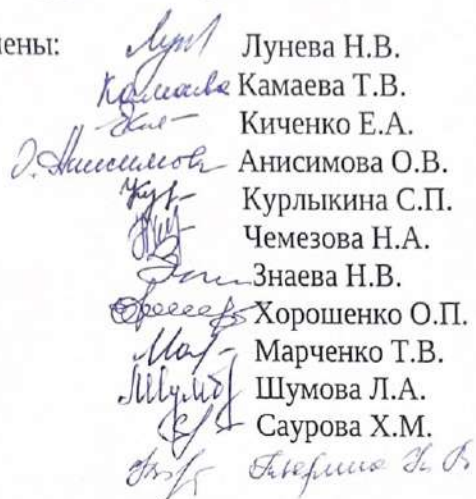 лены: Лунева Н.В.
Камаева Камаева Т.В.
Киченко Е.А.
О. Анисимова Анисимова О.В.
Курлыкина С.П.
Чемезова Н.А.
Знаева Н.В.
Хорошенко О.П.
Марченко Т.В.
Шумова Л.А.
Саурова Х.М.